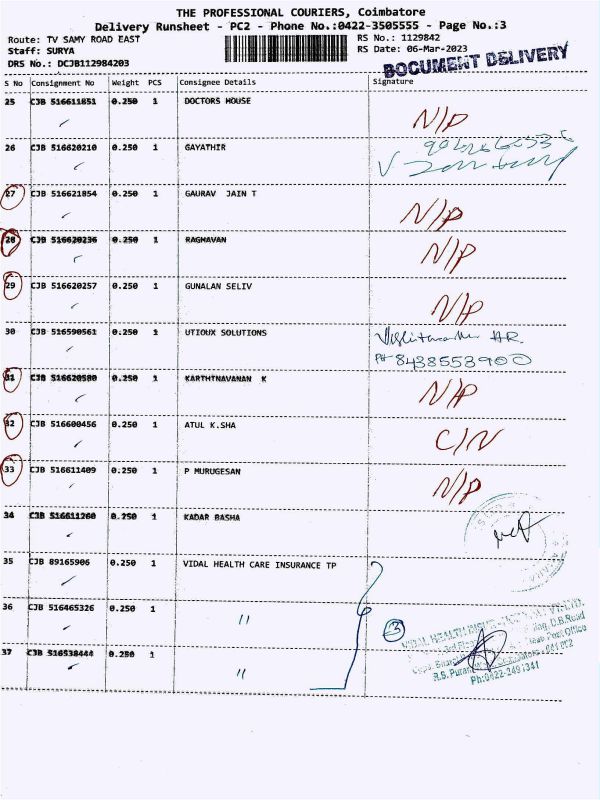 THE PROFESSIONAL COURIERS, Coimbatore
Delivery Runsheet - PC2 - Phone No.:0422-3505555 - Page No.:3
Route: TV SAMY ROAD EAST RS No.: 1129842
Staff: SURYA RS Date: 06-Mar-2023
DRS No.: DCJB112984203 DOCUMENT DELIVERY
S No Consignment No Weight PCS Consignee Details Signature
25 CJB 516611851 0.250 1 DOCTORS HOUSE N/P
26 CJB 516620210 0.250 1 GAYATHIR
27 CJB 516621854 0.250 1 GAURAV JAIN T N/P
28 CJB 516620236 0.250 1 RAGHAVAN N/P
29 CJB 516620257 0.250 1 GUNALAN SELIV N/P
30 CJB 516590561 0.250 1 UTIOUX SOLUTIONS
PH 8438553900
31 CJB 516620580 0.250 1 KARTHTNAVANAN K N/P
32 CJB 516600456 0.250 1 ATUL K.SHA C/N
33 CJB 516611409 0.250 1 P MURUGESAN N/P
34 CJB 516611260 0.250 1 KADAR BASHA
35 CJB 89165906 0.250 1 VIDAL HEALTH CARE INSURANCE TP
36 CJB 516465326 0.250 1 " 3
VIDAL HEALTH
D.B.Road
Post Office
37 CJB 516538444 0.250 1 "
R.S. Puram
Ph:0422-2491341